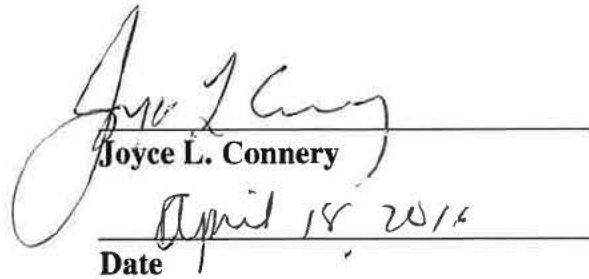 Joyce L Connery
Joyce L. Connery
April 18 2016
Date